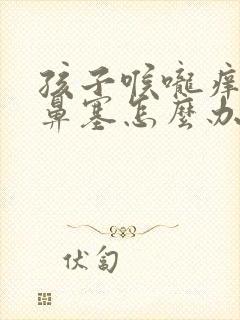 孩子喉嚨痒
鼻塞怎麼办
伏匐